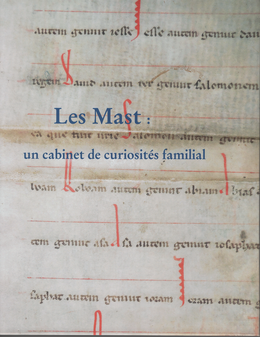 autem genuit iesse Iesse autem genuit dau
regem David autem rex genuit salomonem
Les Mast :
ea que fuit urie Salomon autem genuit
un cabinet de curiosités familial
boam Roboam autem genuit abiam Abias
tem genuit asa sa autem genuit iosaphat
saphat autem genuit ioram Ioram autem genu